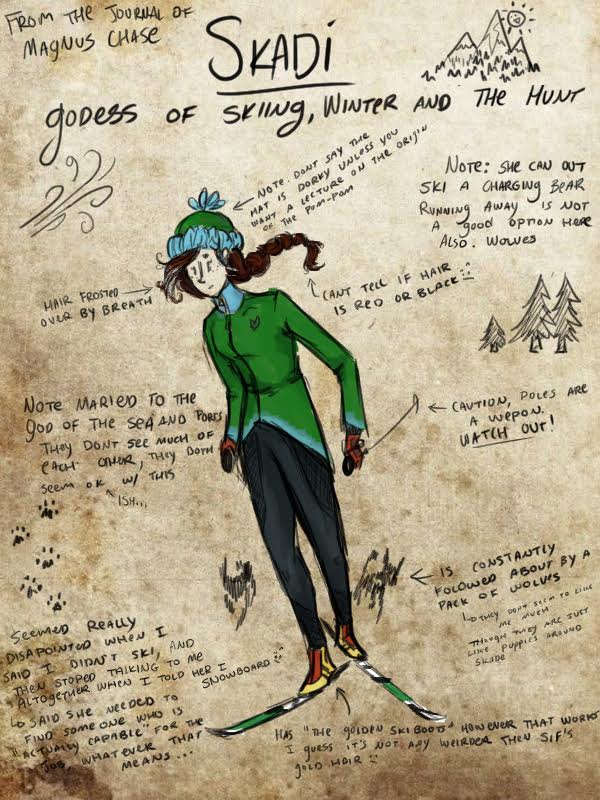 FROM THE JOURNAL OF
MAGNUS CHASE
SKADI
godess of skiing, Winter and The Hunt
NOTE. DONT SAY THE
HAT IS DORKY UNLESS YOU
WANT A LECTURE ON THE ORIGIN
OF THE POM-POM
NOTE: SHE CAN OUT
SKI A CHARGING BEAR
RUNNING AWAY IS NOT
A GOOD OPTION HERE
ALSO. WOLVES
HAIR FROSTED
OVER BY BREATH
CANT TELL IF HAIR
IS RED OR BLACK
NOTE MARIED TO THE
GOD OF THE SEA AND PORTS
THEY DONT SEE MUCH OF
EACH OTHER, THEY BOTH
SEEM OK W/ THIS
ISH...
CAUTION, POLES ARE
A WEPON.
WATCH OUT!
IS CONSTANTLY
FOLOWED ABOUT BY A
PACK OF WOLVES
THEY DON'T SEEM TO LIKE
ME MUCH
THOUGH THEY ARE JUST
LIKE PUPPIES AROUND
SKADE
SEEMED REALLY
DISAPOINTED WHEN I
SAID I DIDN'T SKI, AND
THEN STOPED TALKING TO ME
ALTOGETHER WHEN I TOLD HER I
SNOWBOARD
SAID SHE NEEDED TO
FIND SOMEONE WHO IS
"ACTUALLY CAPABLE" FOR THE
JOB, WHATEVER THAT
MEANS...
HAS "THE GOLDEN SKI BOOTS" HOWEVER THAT WORKS
I GUESS IT'S NOT ANY WEIRDER THEN SIF'S
GOLD HAIR